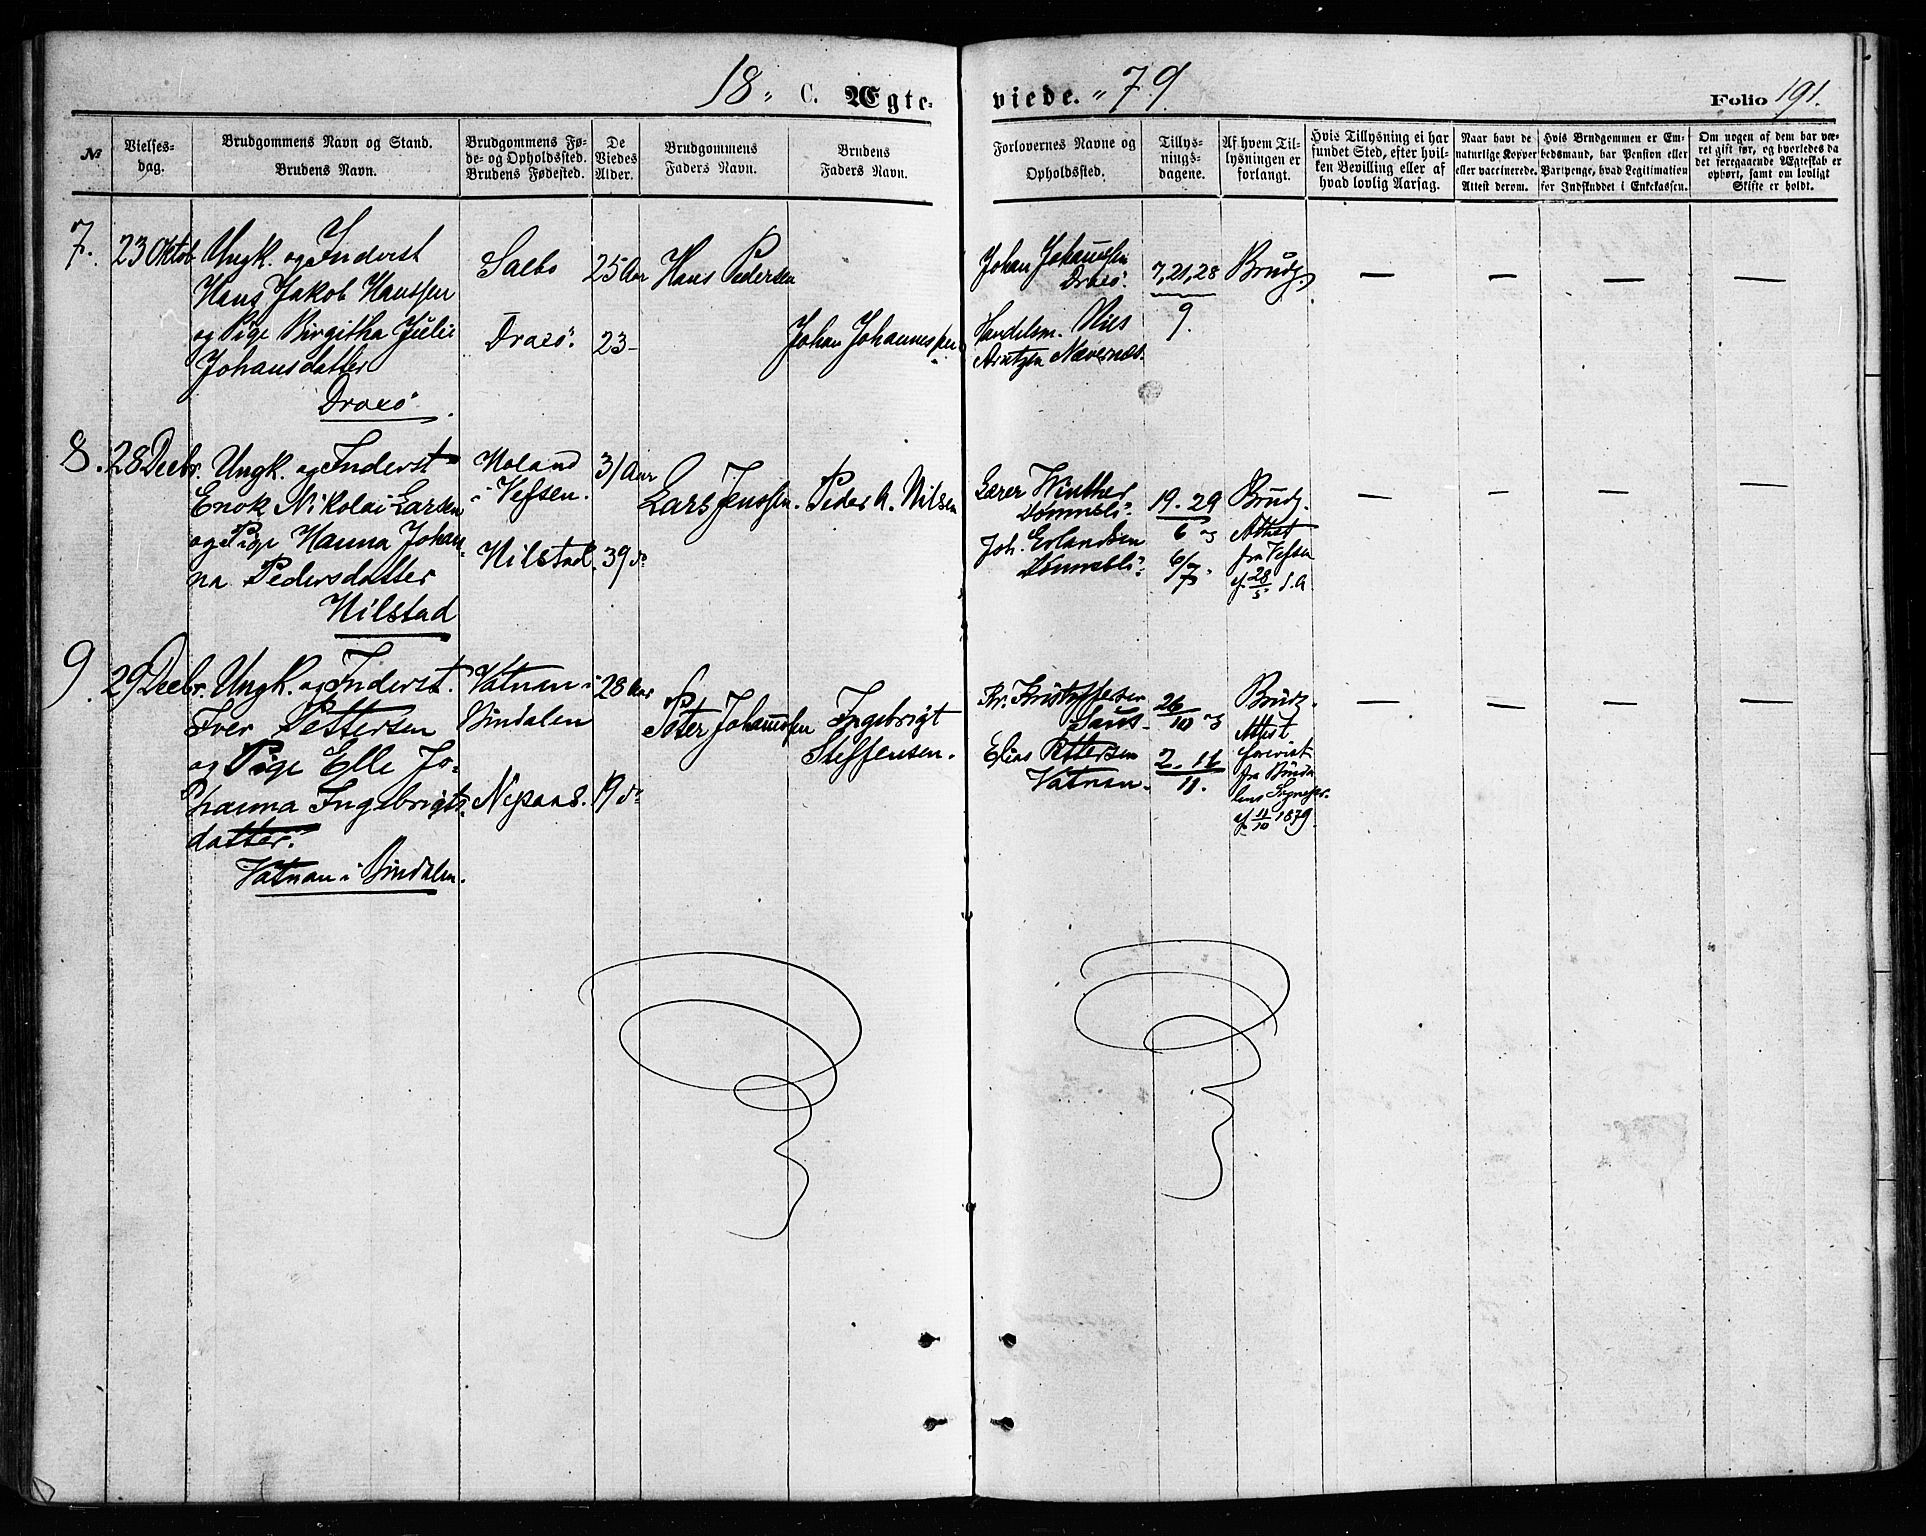 18 " C. Ægte-
viede. " 79.
Folio 191.
№
Vielses-
dag.
Brudgommens Navn og Stand.
Brudens Navn.
Brudgommens Fø-
de- og Opholdssted.
Brudens Fødested.
De
Viedes
Alder.
Brudgommens
Faders Navn.
Brudens
Faders Navn.
Forlovernes Navne og
Opholdssted.
Tillys-
nings-
dagene.
Af hvem Til-
lysningen er
forlangt.
Hvis Tillysning ei har
fundet Sted, efter hvil-
ken Bevilling eller af
hvad lovlig Aarsag.
Naar havt de
naturlige Kopper
eller vaccinerede.
Attest derom.
Hvis Brudgommen er Em-
bedsmand, har Pension eller
Vartpenge, hvad Legitimation
for Indskuddet i Enkekassen.
Om nogen af dem har væ-
ret gift før, og hvorledes da
det foregaaende Ægteskab er
ophørt, samt om lovligt
Skifte er holdt.
7.
23 Oktob
Ungk. og Inderst
Hans Jakob Hanssen
og Pige Birgitha Julie
Johansdatter
Saebo
Draeö.
25 Aar
23 -
Hans Pedersen
Johan Johannessen
Johan Johanssen
Draeö.
Handelsm. Nils
Arntzen Nævernæs.
7, 21, 28
9.
Brudg.
— — — —
Draeö.
8.
28 Decbr.
Ungk. og Inderst
Enok Nikolai Larsen
og Pige Hanna Johan-
na Pedersdatter
Nilstad
Holand
i Vefsen.
Nilstad.
31 Aar
39 do
Lars Jenssen.
Peder A. Nilsen
Lærer Winther
Joh. Erlandsen
19. 29
6 og
6/7.
Brudg.
Attest
fra Vefsen
af 28/5 d. A
— — — —
9.
29 Decbr.
Ungk. og Inderst.
Iver Pettersen
og Pige Elle Jo-
hanna Ingebrigts-
datter.
Vatnan i Bindalen.
Vatnan i
Bindalen
28 Aar
19 do
Peter Johanssen
Ingebrigt
Steffensen.
Kr. Kristoffersen
Saus.
Elias Pettersen
Vatnan.
26
10 og
2. 16
11.
Brudg.
Attest
forevist
fra Binda-
lens
af 11/10 1879.
— — — —